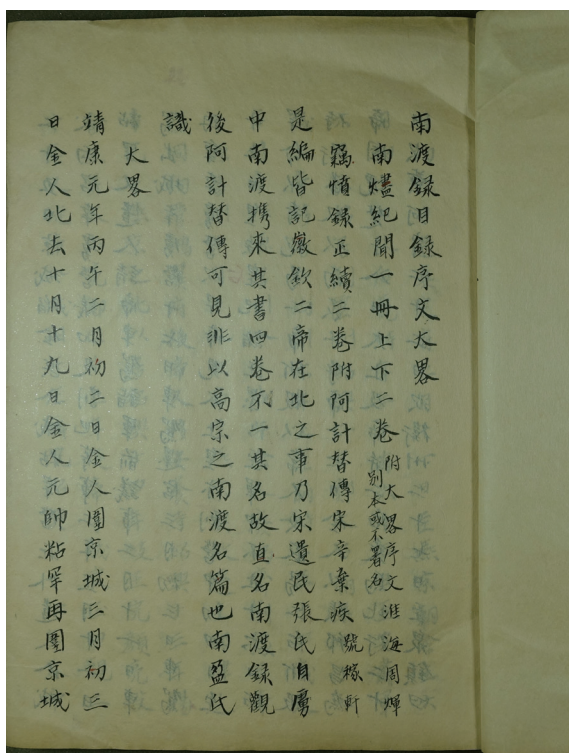 南渡録目録序文大畧
南燼紀聞一冊上下二卷附大畧序文淮海周輝
别本或不署名
竊憤錄正續二卷附阿計替傳宋辛棄疾號稼軒
是編皆記徽欽二帝在北之事乃宋遺民張氏自虜
中南渡携來其書四卷不一其名故直名南渡録觀
後阿計替傳可見非以高宗之南渡名篇也南盈氏
識
大畧
靖康元年丙午二月初二日金人圍京城三月初三
日金人北去十月十九日金人元帥粘罕再圍京城